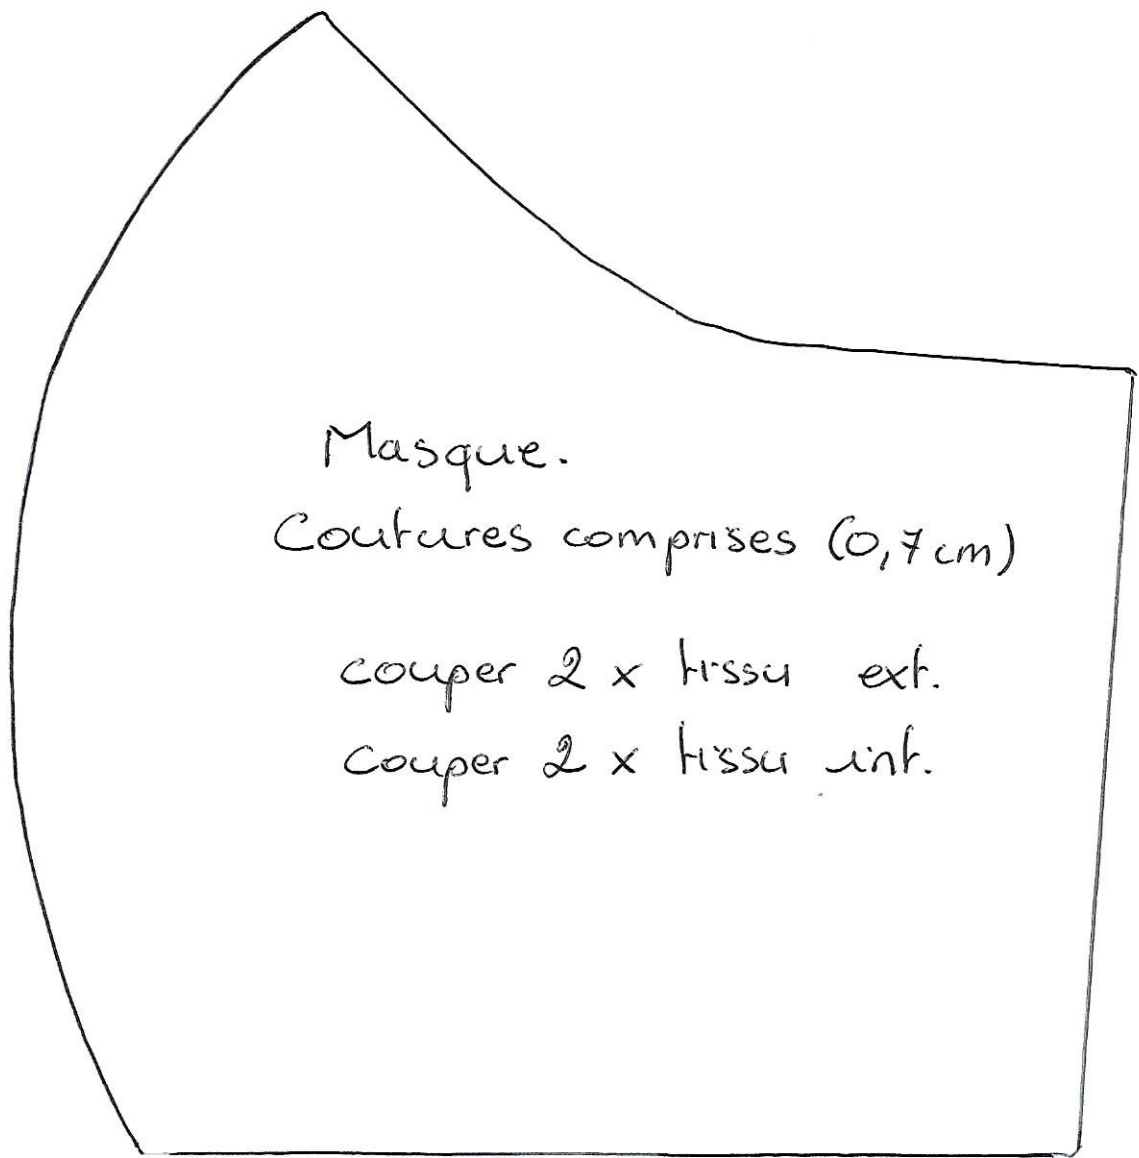 Masque.
Coutures comprises (0,7 cm)
couper 2 x tissu ext.
couper 2 x tissu int.